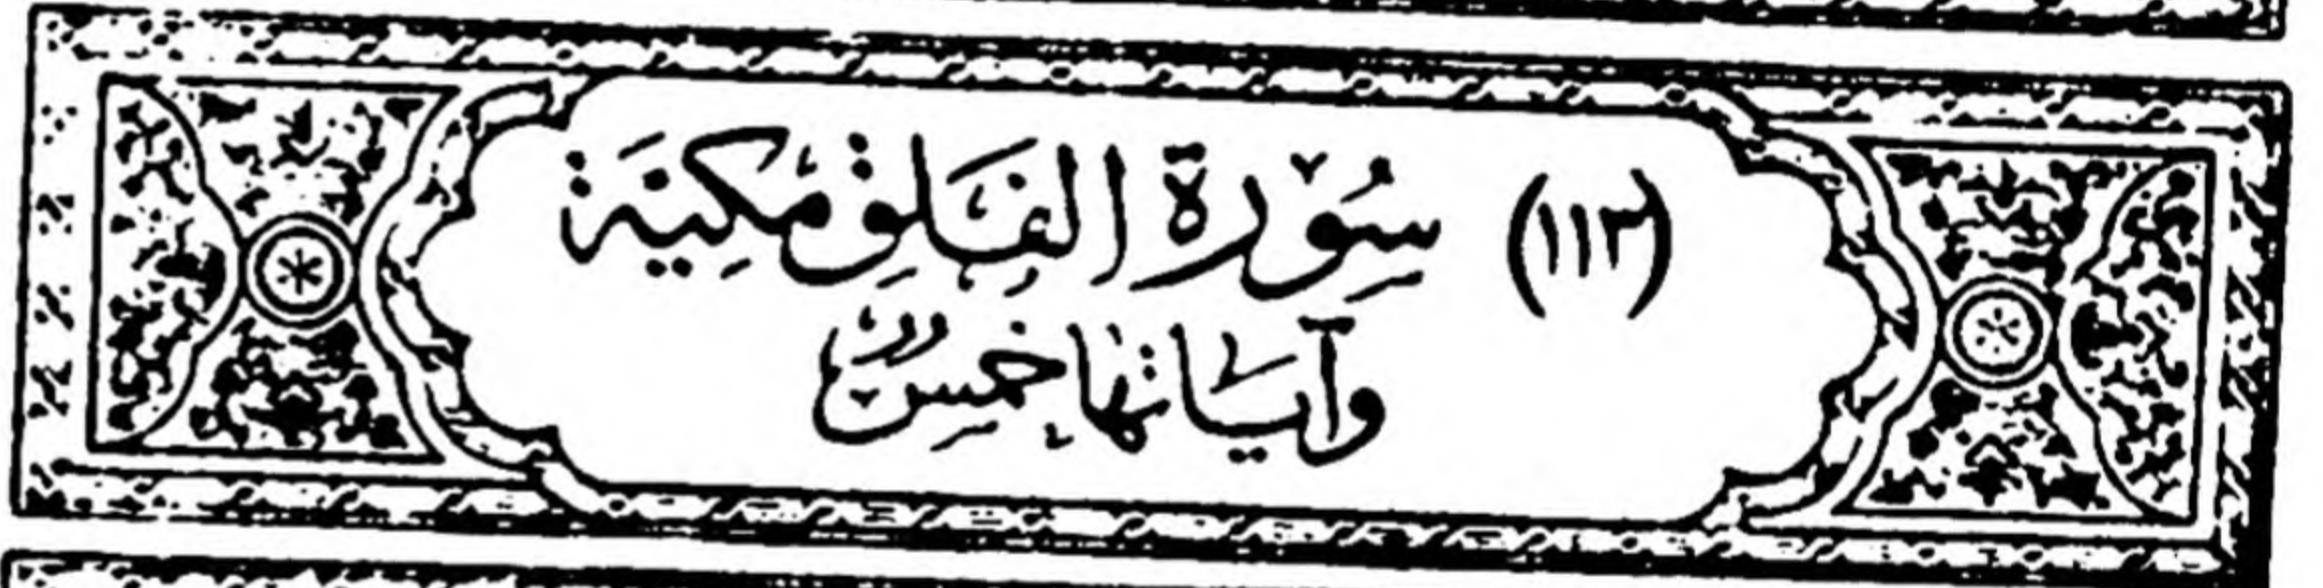 (١١٣) سُوْرَةُ الفَلَقِ مَكِيَّة
وآيَاتُهَا خَمْسٌ